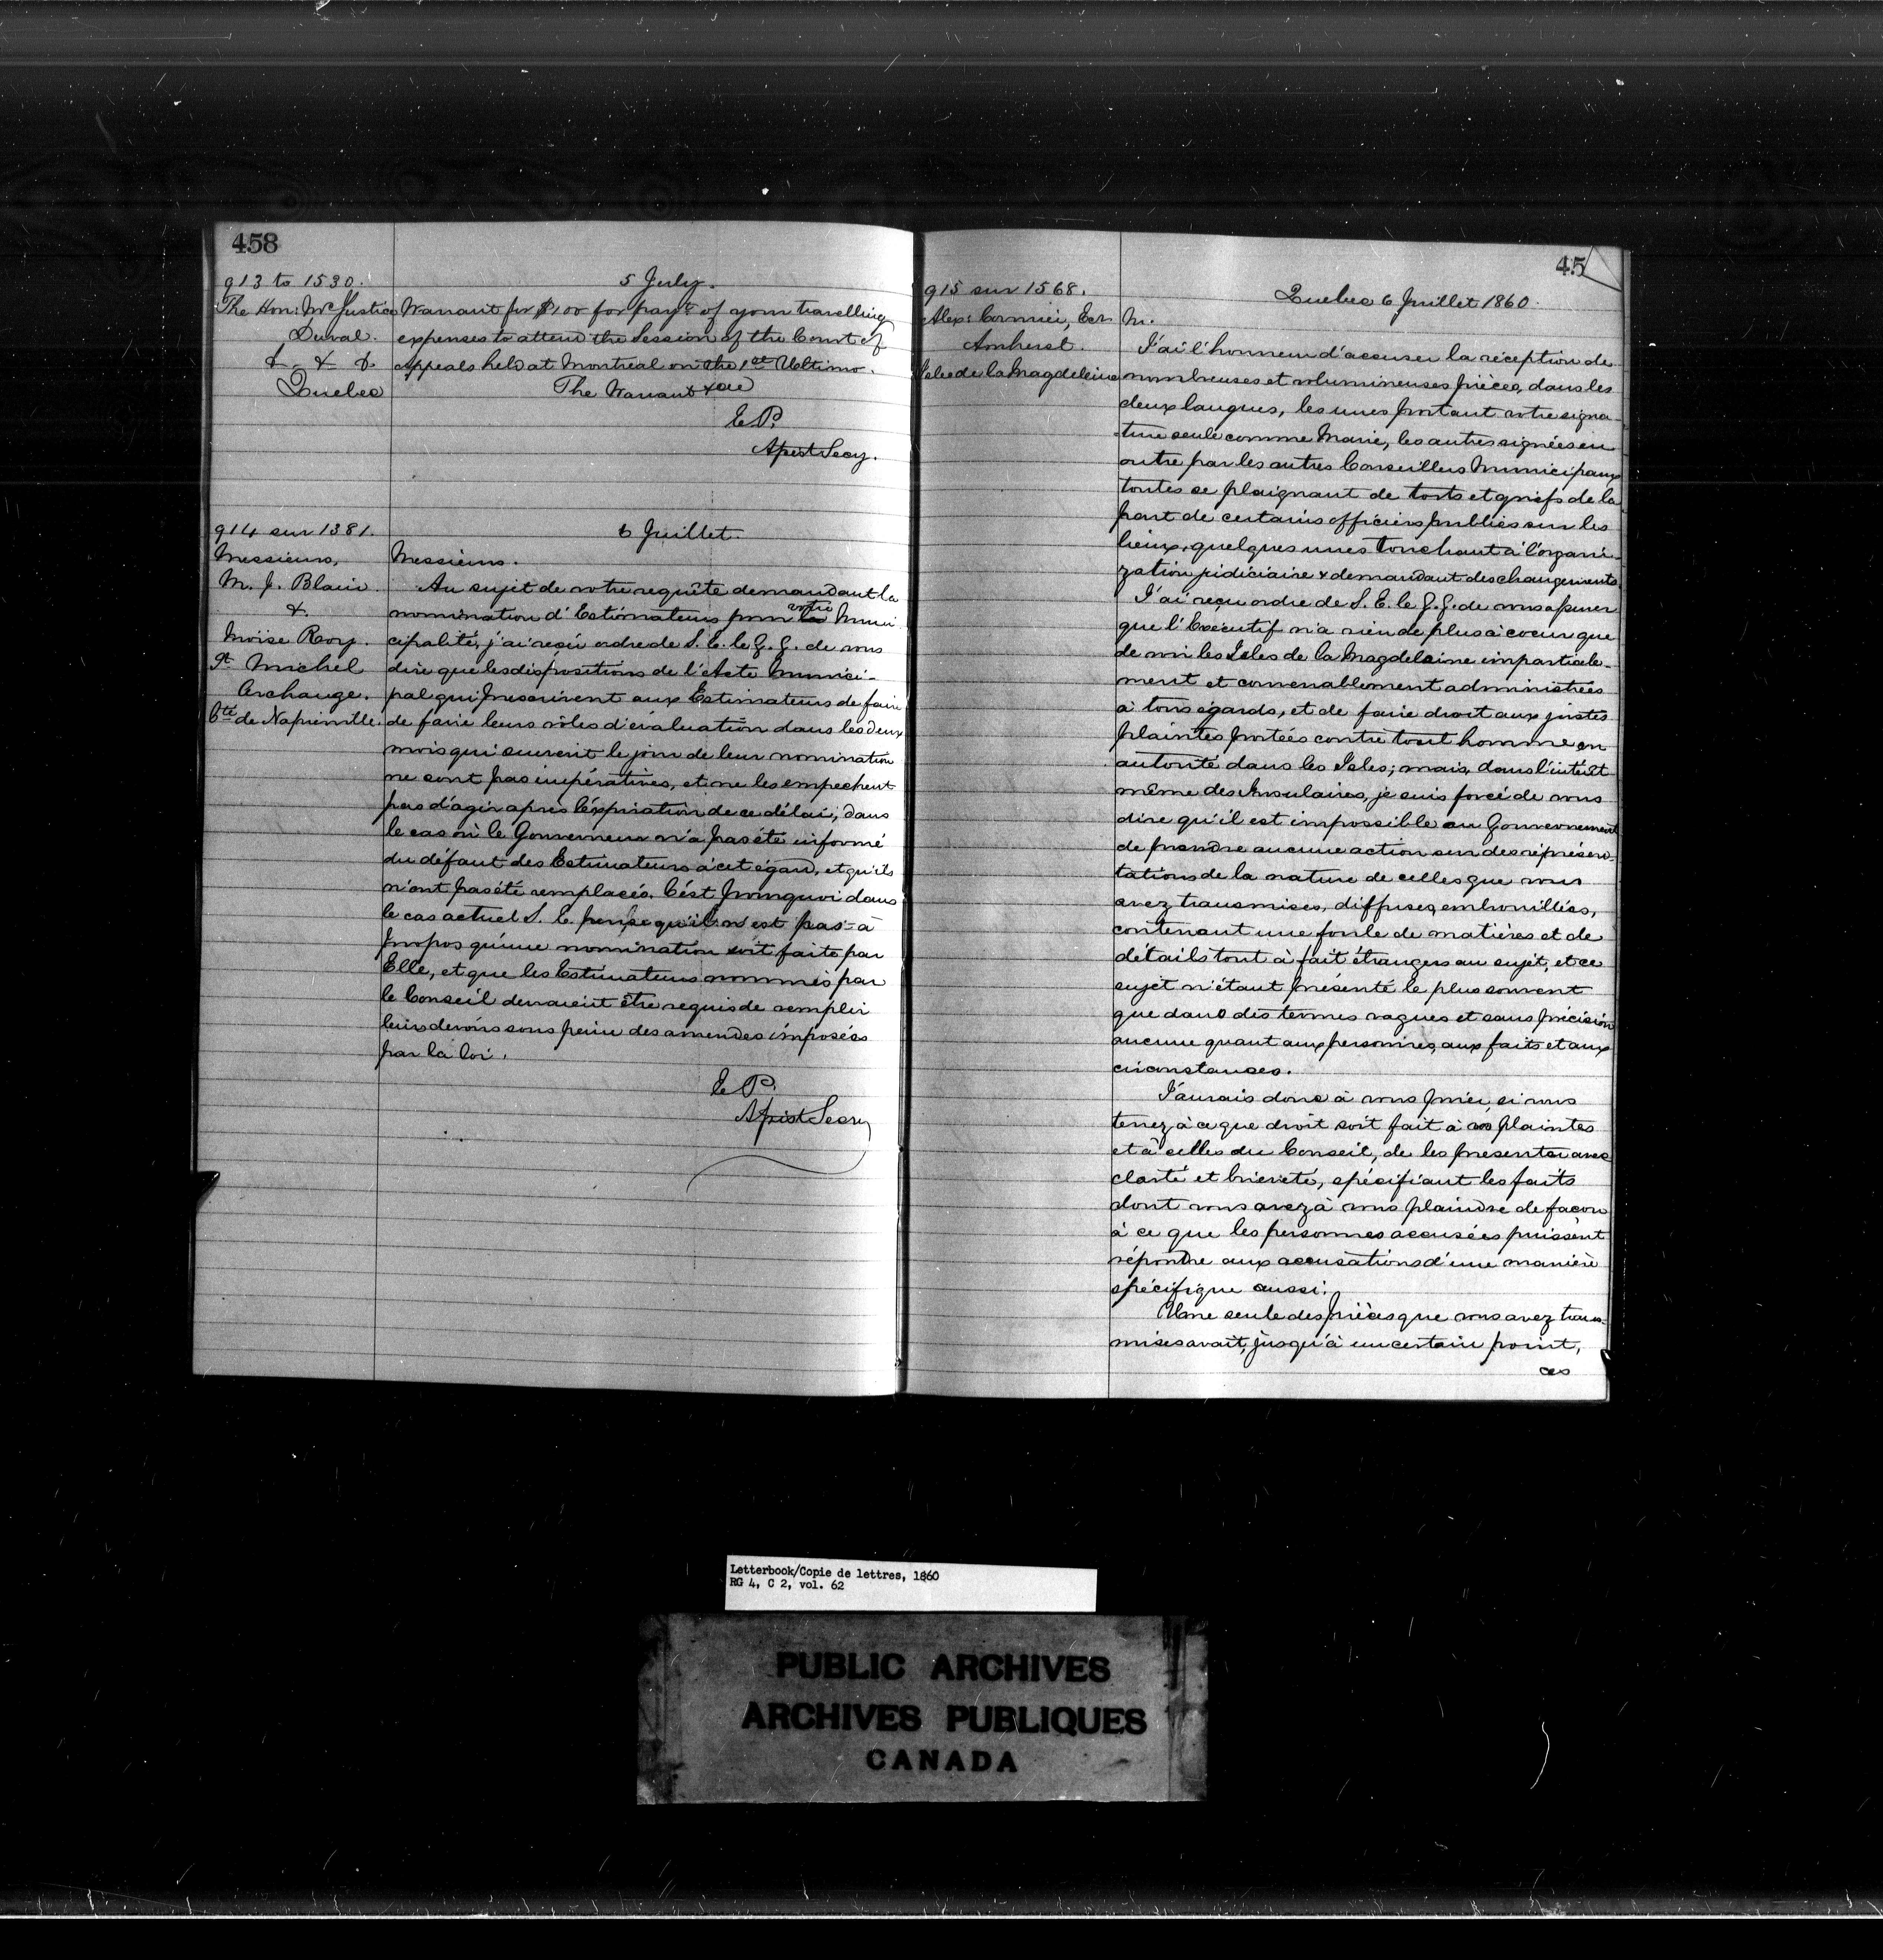 458
913 to 1530.
5 July.
The Hon: Mr Justice
Duval.
& & &
Quebec
Warrant for $100 for paymt of your travelling
expenses to attend the Session of the Court of
Appeals held at Montreal on the 1st Ultimo.
The Warrant &ca
E P.
Asst Secy.
914 sur 1381.
6 Juillet.
Messieurs,
M. J. Blain
&
Moïse Roy.
St Michel
Archange.
Cté de Napierville.
Messieurs.
Au sujet de votre requête demandant la
nomination d'Estimateurs pour votre Muni
cipalité, j'ai reçu ordre de S. E. le G. G. de vous
dire que les dispositions de l'Acte Munici-
pal qui prescrivent aux Estimateurs de faire
de faire leurs rôles d'évaluation dans les deux
mois qui suivent le jour de leur nomination
ne sont pas impératives, et ne les empechent
pas d'agir après l'éxpiration de ce délai, dans
le cas où le Gouverneur n'a pas été informé
du défaut des Estimateurs à cet égard, et qu'ils
n'ont pas été remplacés. C'ést pourquoi dans
le cas actuel S. E. pense qu'il n'est pas à
propos qu'une nomination soit faite par
Elle, et que les Estimateurs nommés par
le Conseil devraient être requis de remplir
leurs devoirs sous peine des amendes imposées
par la loi.
E P.
Asist Secry
45
915 sur 1568.
Quebec 6 Juillet 1860.
Alex: Cormier, Ecr
Amherst.
Isles de la Magdeleine
M.
J'ai l'honneur d'accuser la réception de
nombreuses et volumineuses pièces, dans les
deux langues, les unes portant votre signa-
ture seule comme Maire, les autres signées en
outre par les autres Conseillers Municipaux
toutes se plaignant de torts et griefs de la
part de certains officiers publics sur les
lieux, quelques unes touchant à l'organi-
zation judiciaire & demandant des changements.
J'ai reçu ordre de S. E. le G. G. de vous assurer
que l'Exécutif n'a rien de plus à coeur que
de voir les Isles de la Magdeleine impartiale-
ment et convenablement administrées
à tous égards, et de faire droit aux justes
plaintes portées contre tout homme en
autorité dans les Isles; mais, dans l'intérêt
même des Insulaires, je suis forcé de vous
dire qu'il est impossible au Gouvernement
de prendre aucune action sur des représen-
tations de la nature de celles que vous
avez transmises, diffuses, embrouillées,
contenant une foule de matières et de
détails tout à fait étrangers au sujet, et ce
sujet n'étant présenté le plus souvent
que dans des termes vagues et sans précision
aucune quant aux personnes, aux faits et aux
circonstances.
J'aurais donc à vous prier, si vous
tenez à ce que droit soit fait à vos plaintes
et à celles du Conseil, de les présenter avec
clarté et brièveté, spécifiant les faits
dont vous avez à vous plaindre de facon
à ce que les personnes accusées puissent
répondre aux accusations d'une manière
spécifique aussi.
Une seule des pièces que vous avez trans-
mises avait, jusqu'à un certain point,
ces
Letterbook/Copie de lettres, 1860
RG 4, C 2, vol. 62
PUBLIC ARCHIVES
ARCHIVES PUBLIQUES
CANADA